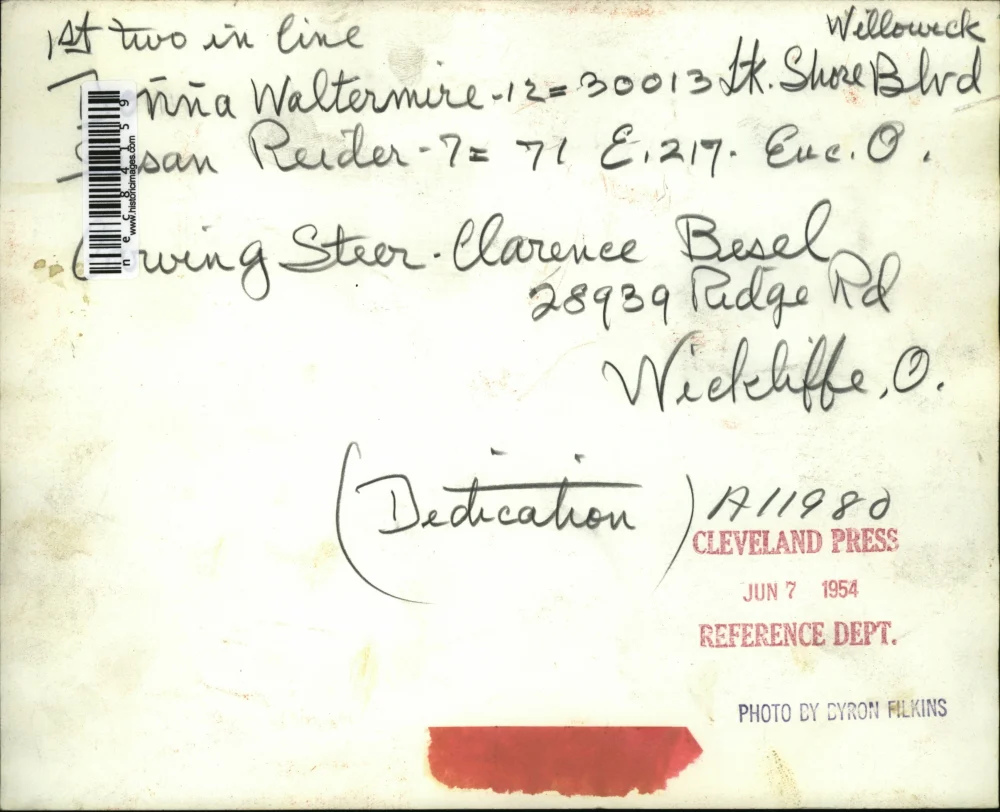 1st two in line
Willowick
nña Waltermire-12= 30013 Lk. Shore Blvd
san Reider-7= 71 E.217. Euc. O.
rving Steer. Clarence Besel
28939 Ridge Rd
Wickliffe, O.
(Dedication)
A11980
CLEVELAND PRESS
JUN 7 1954
REFERENCE DEPT.
PHOTO BY BYRON FILKINS
neC84159
www.historicimages.com